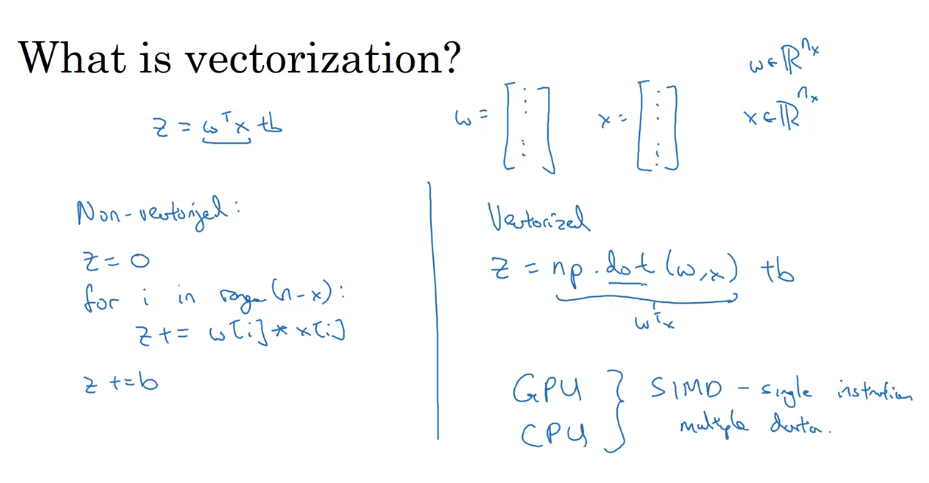 What is vectorization?
z = wᵀx + b
w = [⋮ ⋮] x = [⋮ ⋮]
w ∈ ℝⁿˣ
x ∈ ℝⁿˣ
Non-vectorized:
z = 0
for i in range(n-x):
z += w[i] * x[i]
z += b
Vectorized
z = np.dot(w,x) + b
wᵀx
GPU
CPU
} SIMD - single instruction
multiple data.